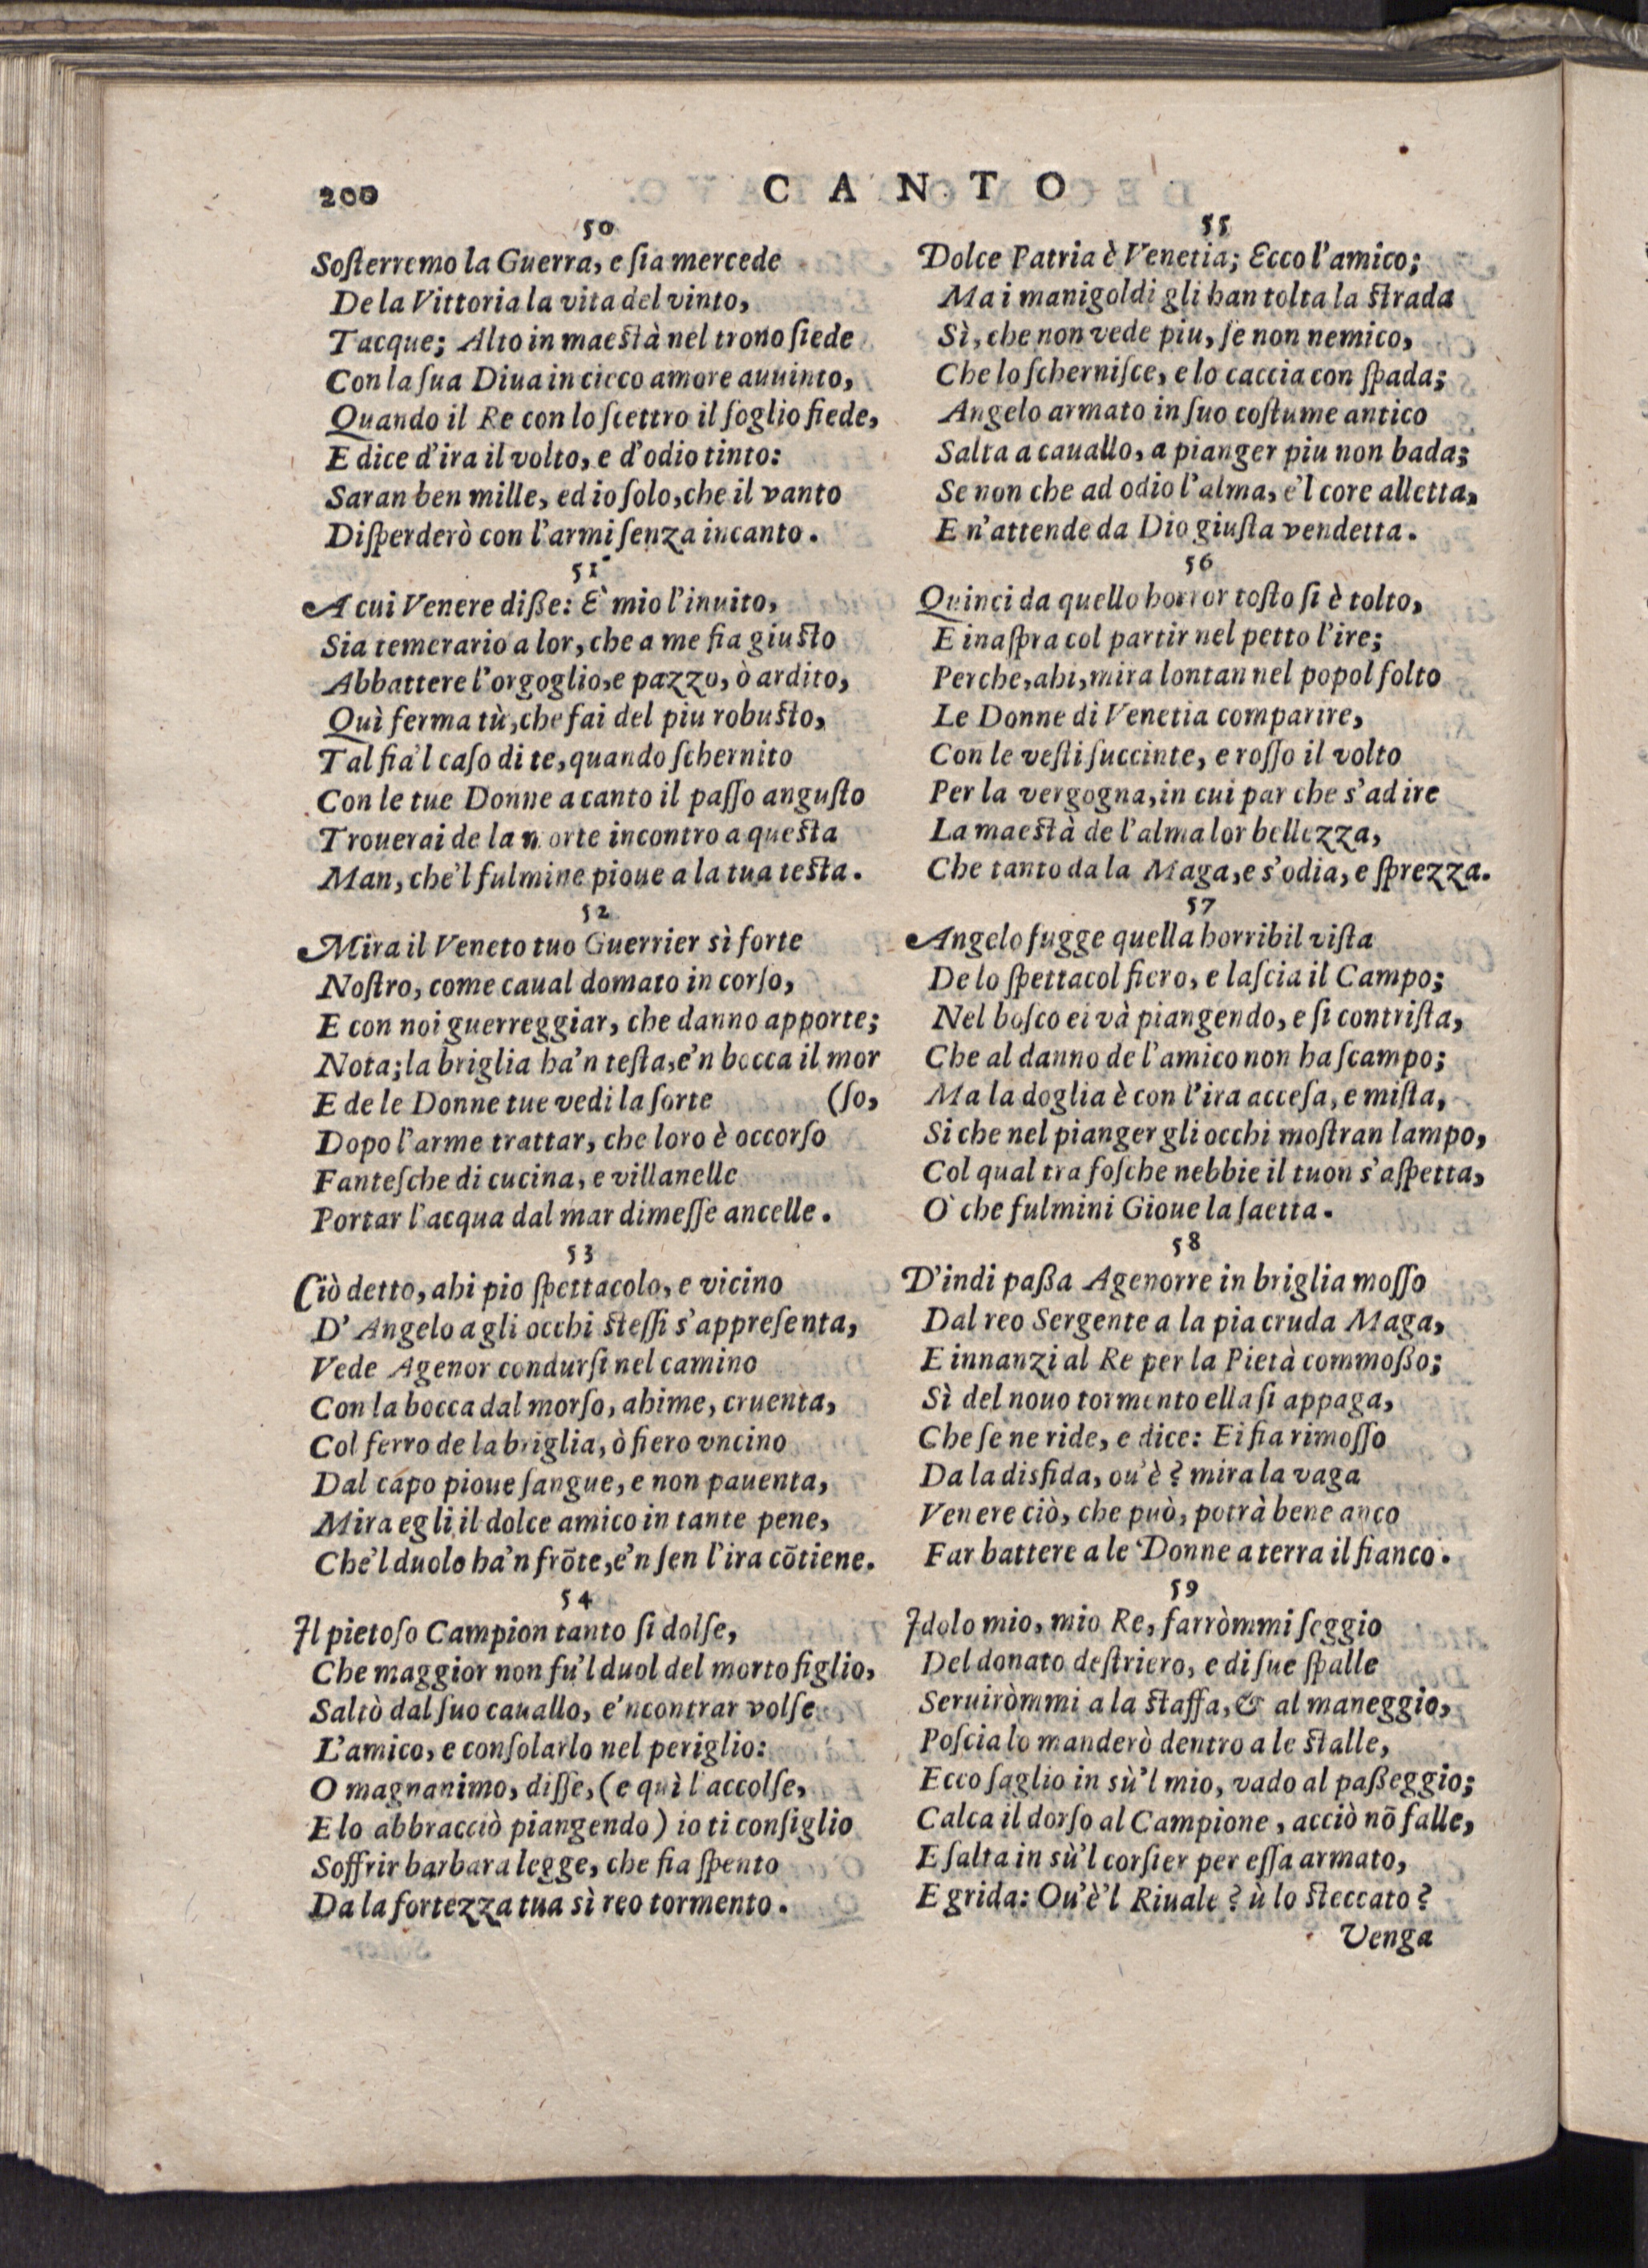 200
CANTO
50
Soſterremo la Guerra, e ſia mercede
De la Vittoria la vita del vinto,
Tacque; Alto in maeſtà nel trono ſiede
Con la ſua Diua in cieco amore auuinto,
Quando il Re con lo ſcettro il ſoglio fiede,
E dice d'ira il volto, e d'odio tinto:
Saran ben mille, ed io ſolo, che il vanto
Diſperderò con l'armi ſenza incanto.
51
A cui Venere diße: È mio l'inuito,
Sia temerario a lor, che a me fia giuſto
Abbattere l'orgoglio, e pazzo, ò ardito,
Quì ferma tù, che fai del piu robuſto,
Tal fia'l caſo di te, quando ſchernito
Con le tue Donne a canto il paſſo anguſto
Trouerai de la morte incontro a queſta
Man, che'l fulmine pioue a la tua teſta.
52
Mira il Veneto tuo Guerrier sì forte
Noſtro, come caual domato in corſo,
E con noi guerreggiar, che danno apporte;
Nota; la briglia ha'n teſta, e'n bocca il mor
E de le Donne tue vedi la ſorte (ſo,
Dopo l'arme trattar, che loro è occorſo
Fanteſche di cucina, e villanelle
Portar l'acqua dal mar dimeſſe ancelle.
53
Ciò detto, ahi pio ſpettacolo, e vicino
D'Angelo a gli occhi ſteſſi s'appreſenta,
Vede Agenor condurſi nel camino
Con la bocca dal morſo, ahime, cruenta,
Col ferro de la briglia, ò fiero vncino
Dal capo pioue ſangue, e non pauenta,
Mira egli il dolce amico in tante pene,
Che'l duolo ha'n frõte, e'n ſen l'ira cõtiene.
54
Il pietoſo Campion tanto ſi dolſe,
Che maggior non fu'l duol del morto figlio,
Saltò dal ſuo cauallo, e'ncontrar volſe
L'amico, e conſolarlo nel periglio:
O magnanimo, diſſe, (e quì l'accolſe,
E lo abbracciò piangendo) io ti conſiglio
Soffrir barbara legge, che fia ſpento
Da la fortezza tua sì reo tormento.
55
Dolce Patria è Venetia; Ecco l'amico;
Ma i manigoldi gli han tolta la ſtrada
Sì, che non vede piu, ſe non nemico,
Che lo ſcherniſce, e lo caccia con ſpada;
Angelo armato in ſuo coſtume antico
Salta a cauallo, a pianger piu non bada;
Se non che ad odio l'alma, e'l core alletta,
E n'attende da Dio giuſta vendetta.
56
Quinci da quello horror toſto ſi è tolto,
E inaſpra col partir nel petto l'ire;
Perche, ahi, mira lontan nel popol folto
Le Donne di Venetia comparire,
Con le veſti ſuccinte, e roſſo il volto
Per la vergogna, in cui par che s'adire
La maeſtà de l'alma lor bellezza,
Che tanto da la Maga, e s'odia, e ſprezza.
57
Angelo fugge quella horribil viſta
De lo ſpettacol fiero, e laſcia il Campo;
Nel boſco ei và piangendo, e ſi contriſta,
Che al danno de l'amico non ha ſcampo;
Ma la doglia è con l'ira acceſa, e miſta,
Si che nel pianger gli occhi moſtran lampo,
Col qual tra foſche nebbie il tuon s'aſpetta,
O' che fulmini Gioue la ſaetta.
58
D'indi paßa Agenorre in briglia moſſo
Dal reo Sergente a la pia cruda Maga,
E innanzi al Re per la Pietà commoßo;
Sì del nouo tormento ella ſi appaga,
Che ſe ne ride, e dice: Ei fia rimoſſo
Da la disfida, ou'è? mira la vaga
Venere ciò, che può, potrà bene anco
Far battere a le Donne a terra il fianco.
59
Idolo mio, mio Re, farròmmi ſeggio
Del donato deſtriero, e di ſue ſpalle
Seruiròmmi a la ſtaffa, & al maneggio,
Poſcia lo manderò dentro a le ſtalle,
Ecco ſaglio in sù'l mio, vado al paßeggio;
Calca il dorſo al Campione, acciò nõ falle,
E ſalta in sù'l corſier per eſſa armato,
E grida: Ou'è'l Riuale? ù lo ſteccato?
Venga